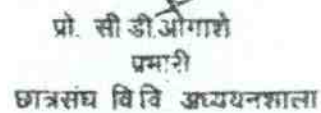 प्रो. सी डी.ओगाशे
प्रभारी
छात्रसंघ वि वि अध्ययनशाला